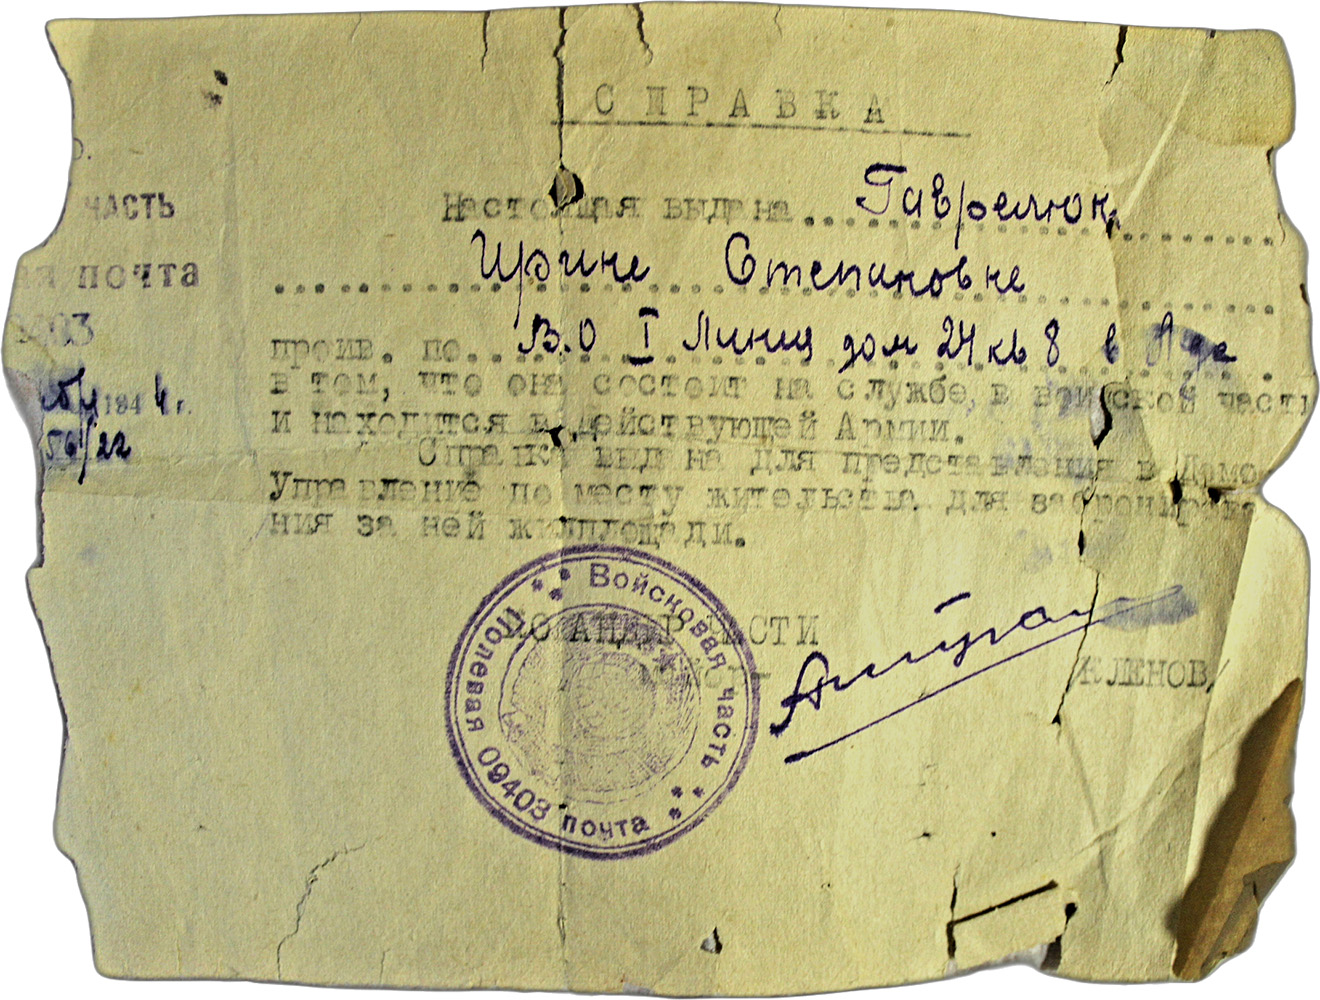 СПРАВКА
ЧАСТЬ
почта
194 4 г.
56/22
Настоящая выдана Гаврелюк
Ирине Степановне
прожив. по В.О I Линия дом 24 кв 8 в
в том, что она состоит на службе, в воинской части
и находится в действующей Армии.
Справка выдана для представления в Домо-
Управление по месту жительства для забронирова
ния за ней жилплощади.
КОМАНДИР ЧАСТИ
КЛЕНОВ/
Войсковая часть
Полевая 09403 почта